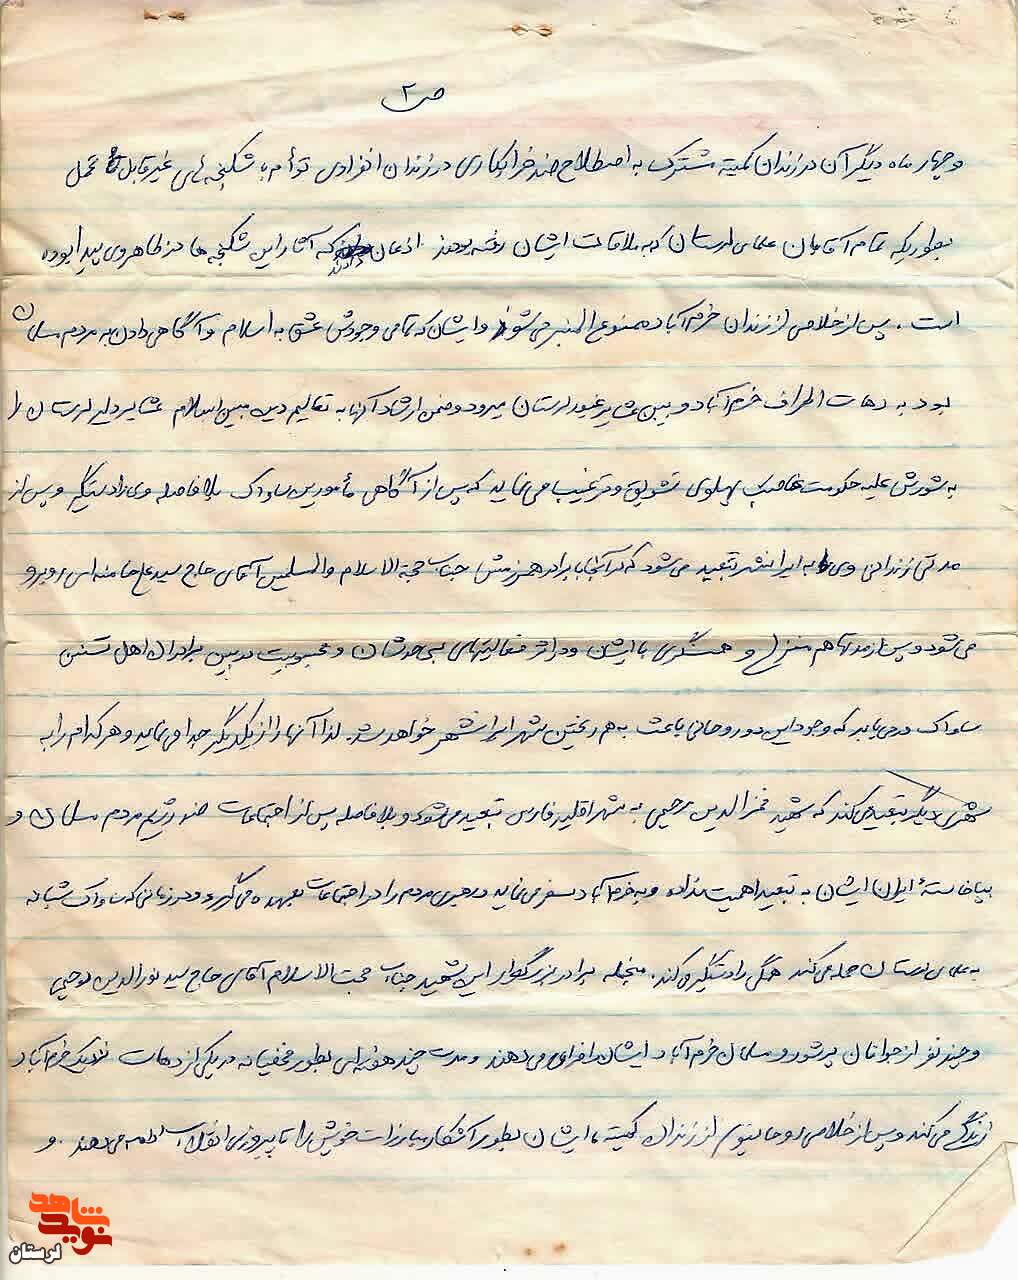 ص ۲
و چهار ماه دیگر آن در زندان کمیته مشترک به اصطلاح ضد خرابکاری در زندان انفرادی توأم با شکنجه‌های غیرقابل تحمل
بطوریکه تمام آقایان علمای لرستان که به ملاقات ایشان رفته بودند اذعان دارند که آثار این شکنجه‌ها در ظاهر وی پیدا بوده
است . پس از خلاصی از زندان خرم آباد ممنوع المنبر می‌شود و ایشان که تمامی وجودش عشق به اسلام و آگاهی دادن به مردم مسلمان
بود به دهات اطراف خرم آباد و بین عشایر غیور لرستان میرود و ضمن ارشاد آنها به تعالیم دین مبین اسلام عشایر دلیر لرستان را
به شورش علیه حکومت غاصب پهلوی تشویق و ترغیب می نماید که پس از آگاهی مأمورین ساواک بلافاصله وی را دستگیر و پس از
مدتی زندانی وی به ایرانشهر تبعید می شود که در آنجا با برادر همرزمش جناب حجة الاسلام والمسلمین آقای حاج سید علی خامنه‌ای روبرو
می شود و پس از مدتها هم منزلی و همسنگری با ایشان و در اثر فعالیتهای بی حدشان و محبوبیت در بین برادران اهل تسنن
ساواک در می یابد که وجود این دو روحانی باعث به هم ریختن شهر ایرانشهر خواهد شد. لذا آنها را از یکدیگر جدا می نماید و هر کدام را به
شهری دیگر تبعید می کند که شهید فخرالدین رحیمی به شهر اقلید فارس تبعید می شود و بلافاصله پس از اجتماعات ضد رژیم مردم مسلمان و
بپاخاستهٔ ایران ایشان به تبعید اهمیت نداده و به خرم آباد سفر می نماید و رهبری مردم را در اجتماعات بعهده می گیرد و در زمانی که ساواک شبانه
به علمای لرستان حمله می کند همگی را دستگیر می کند. منجمله برادر بزرگوار این شهید جناب حجت الاسلام آقای حاج سید نورالدین رحیمی
و چند نفر از جوانان پرشور و مسلمان خرم آباد ایشان را فراری می دهند و مدت چند هفته‌ای بطور مخفیانه در یکی از دهات نزدیک خرم آباد
زندگی می کند و پس از خلاصی روحانیون از زندان کمیته ایشان بطور آشکار مبارزات خویش را تا پیروزی انقلاب ادامه می دهند . و
شاهد
نوید
لرستان